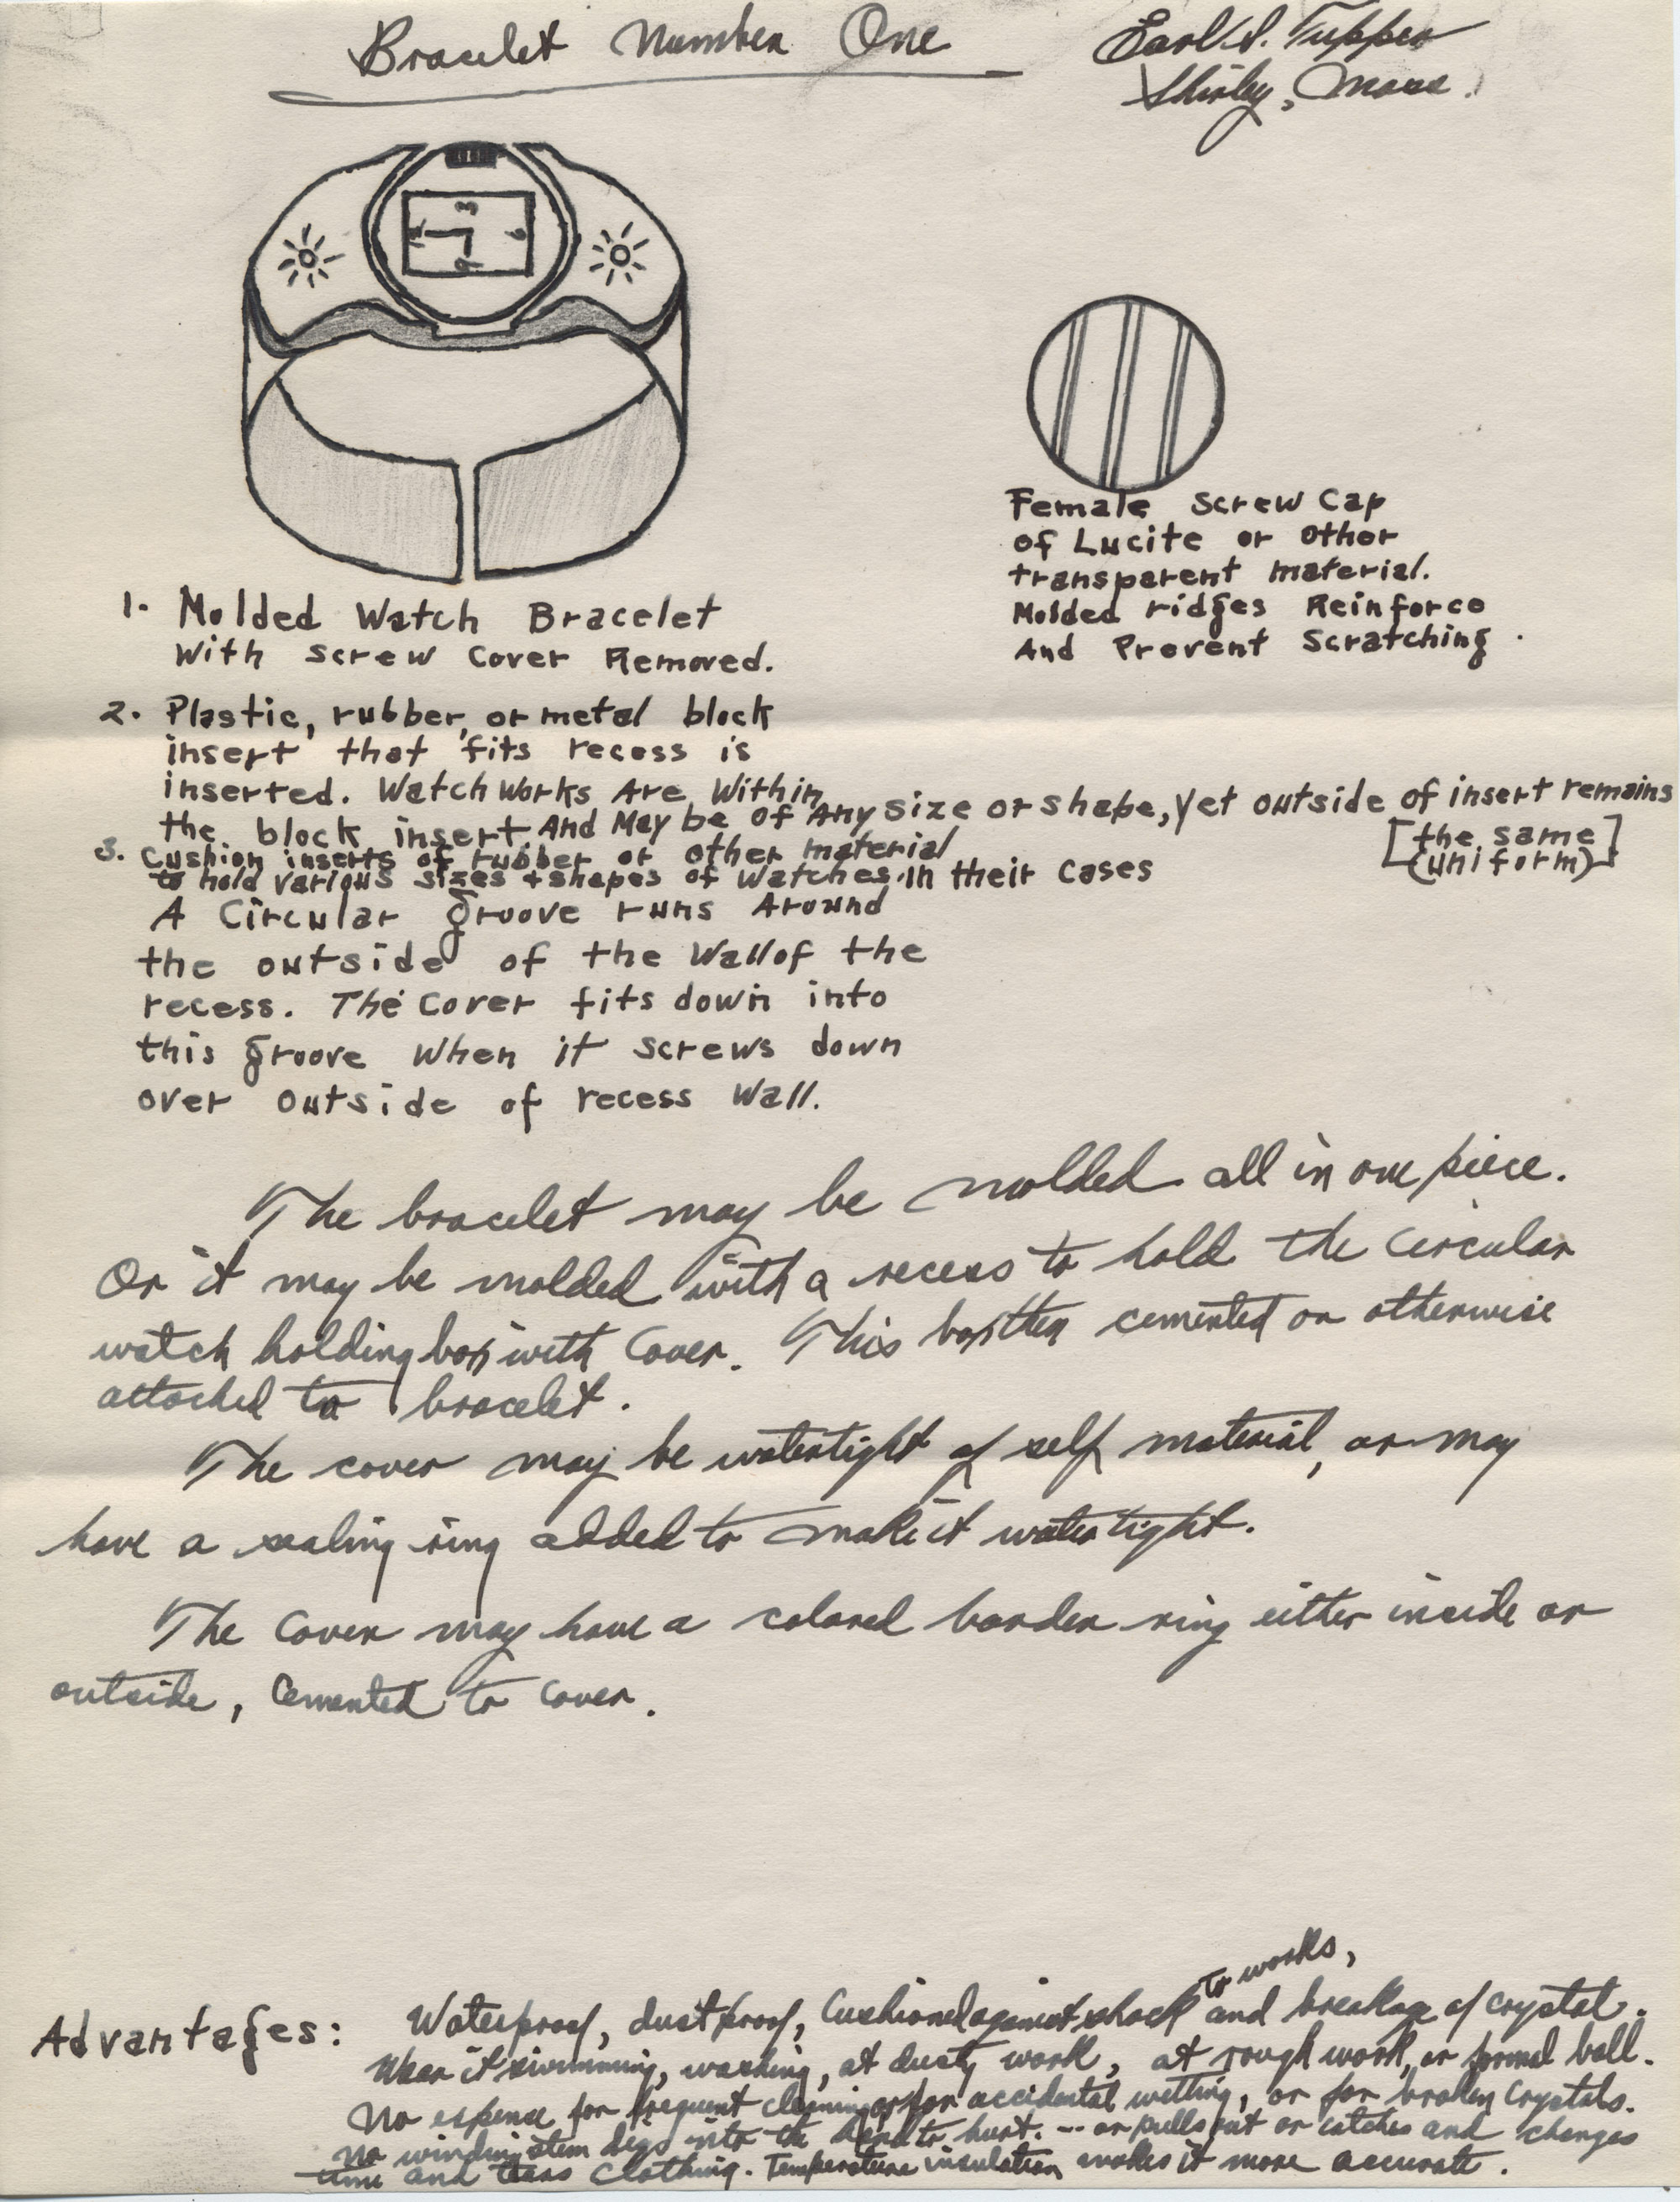 Bracelet Number One
Earl S. Tupper
Shirley, Mass.
3
12
9
6
Female Screw Cap
of Lucite or other
transparent material.
Molded ridges Reinforce
And Prevent Scratching.
1. Molded Watch Bracelet
With Screw Cover Removed.
2. Plastic, rubber, or metal block
insert that fits recess is
inserted. Watch Works Are Within
the block insert. And May be of Any size or shape, yet outside of insert remains
[the same
(uniform)]
3. Cushion inserts of rubber or other material
to hold various sizes + shapes of Watches in their cases
A Circular groove runs Around
the outside of the Wall of the
recess. The Cover fits down into
this groove When it Screws down
over outside of recess Wall.
The bracelet may be molded all in one piece.
Or it may be molded with a recess to hold the circular
watch holding box with Cover. This box then cemented or otherwise
attached to bracelet.
The cover may be watertight of self material, or may
have a sealing ring added to make it watertight.
The Cover may have a colored border ring either inside or
outside, Cemented to Cover.
Advantages: Waterproof, dustproof, Cushioned against shock to works, and breakage of crystal.
Wear it swimming, washing, at dusty work, at rough work, or formal ball.
No expense for frequent cleaning or for accidental wetting, or for broken Crystals.
No winding stem digs into the hand to hurt. -- or pulls out or catches and changes
time and tears clothing. Temperature insulation makes it more accurate.